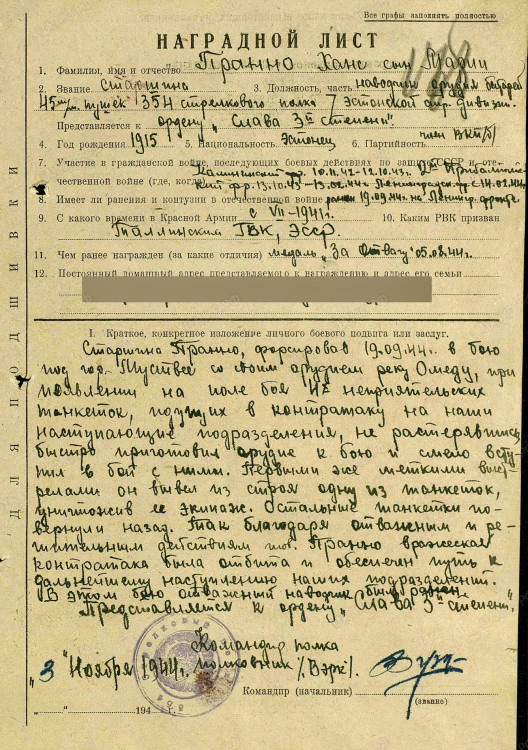 Все графы заполнять полностью
НАГРАДНОЙ ЛИСТ
1. Фамилия, имя и отчество Пранно Ханс сын Марии
2. Звание Старшина 3. Должность, часть наводчик орудия батареи
45 мм пушек 354 стрелкового полка 7 Эстонской стр. дивизии.
Представляется к ордену „Слава 3й степени"
4. Год рождения 1915 5. Национальность Эстонец 6. Партийность член ВКП/б/
7. Участие в гражданской войне, последующих боевых действиях по защите СССР и оте-
чественной войне (где, когда) Калининский фр. 10.11.42-12.10.43. 2й Прибалтий-
ский фр. 13.10.43-13.02.44. Ленинградск. с 14.02.44.
8. Имеет ли ранения и контузии в отечественной войне ранен 19.09.44 на Ленингр. фронте
9. С какого времени в Красной Армии с VII-1941г. 10. Каким РВК призван
Таллинским ГВК, ЭССР.
11. Чем ранее награжден (за какие отличия) медаль „За Отвагу" 05.02.44г.
12. Постоянный домашний адрес представляемого к награждению и адрес его семьи
ДЛЯ ПОДШИВКИ
I. Краткое, конкретное изложение личного боевого подвига или заслуг.
Старшина Пранно, форсировав 19.09.44г. в бою
под гор. Муствее со своим орудием реку Омеду, при
появлении на поле боя 4х неприятельских
танкеток, идущих в контратаку на наши
наступающие подразделения, не растерявшись
быстро приготовил орудие к бою и смело всту-
пил в бой с ними. Первыми же меткими выст-
релами он вывел из строя одну из танкеток,
уничтожив ее экипаж. Остальные танкетки по-
вернули назад. Так благодаря отважным и ре-
шительным действиям тов. Пранно вражеская
контратака была отбита и обеспечен путь к
дальнейшему наступлению наших подразделений.
В этом бою отважный наводчик был ранен.
Представляется к ордену „Слава 3й степени".
Командир полка
полковник /Вэрк/.
„3" Ноября 1944г.
Командир (начальник)
(звание)
„ " 194 г.